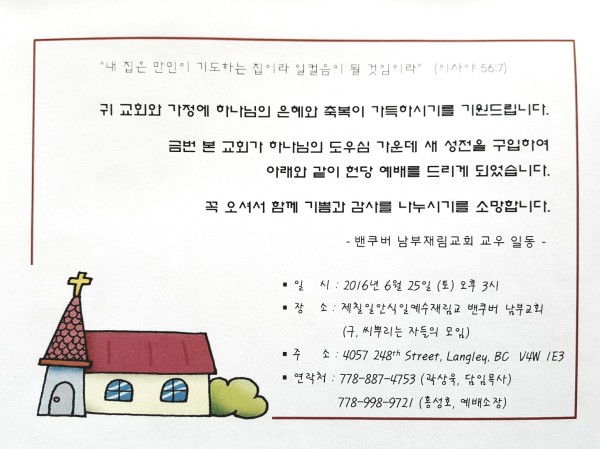 "내 집은 만민이 기도하는 집이라 일컬음이 될 것임이라" (이사야 56:7)
귀 교회와 가정에 하나님의 은혜와 축복이 가득하시기를 기원드립니다.
금번 본 교회가 하나님의 도우심 가운데 새 성전을 구입하여
아래와 같이 헌당 예배를 드리게 되었습니다.
꼭 오셔서 함께 기쁨과 감사를 나누시기를 소망합니다.
- 밴쿠버 남부재림교회 교우 일동 -
▪ 일 시 : 2016년 6월 25일 (토) 오후 3시
▪ 장 소 : 제칠일안식일예수재림교 밴쿠버 남부교회
(구, 씨뿌리는 자들의 모임)
▪ 주 소 : 4057 248th Street, Langley, BC V4W 1E3
▪ 연락처 : 778-887-4753 (곽상욱, 담임목사)
778-998-9721 (홍성호, 예배소장)